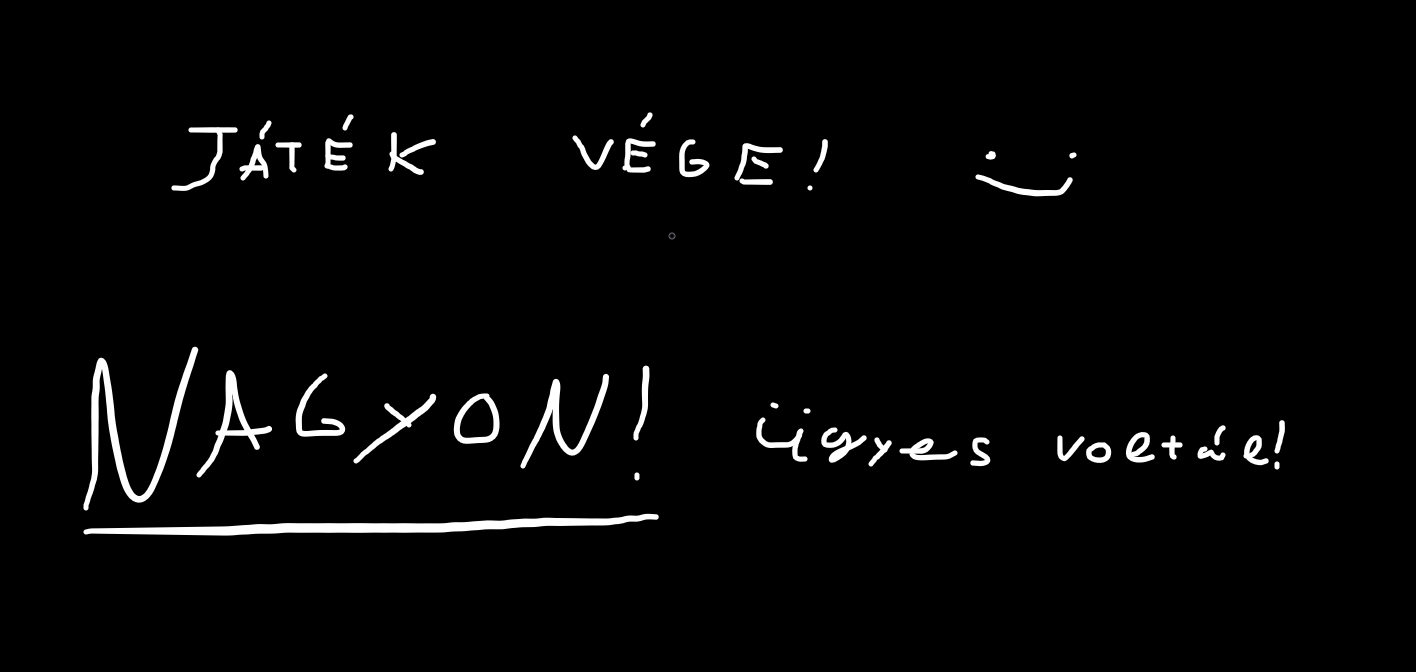 JÁTÉK VÉGE! :)
NAGYON! ügyes voltál!